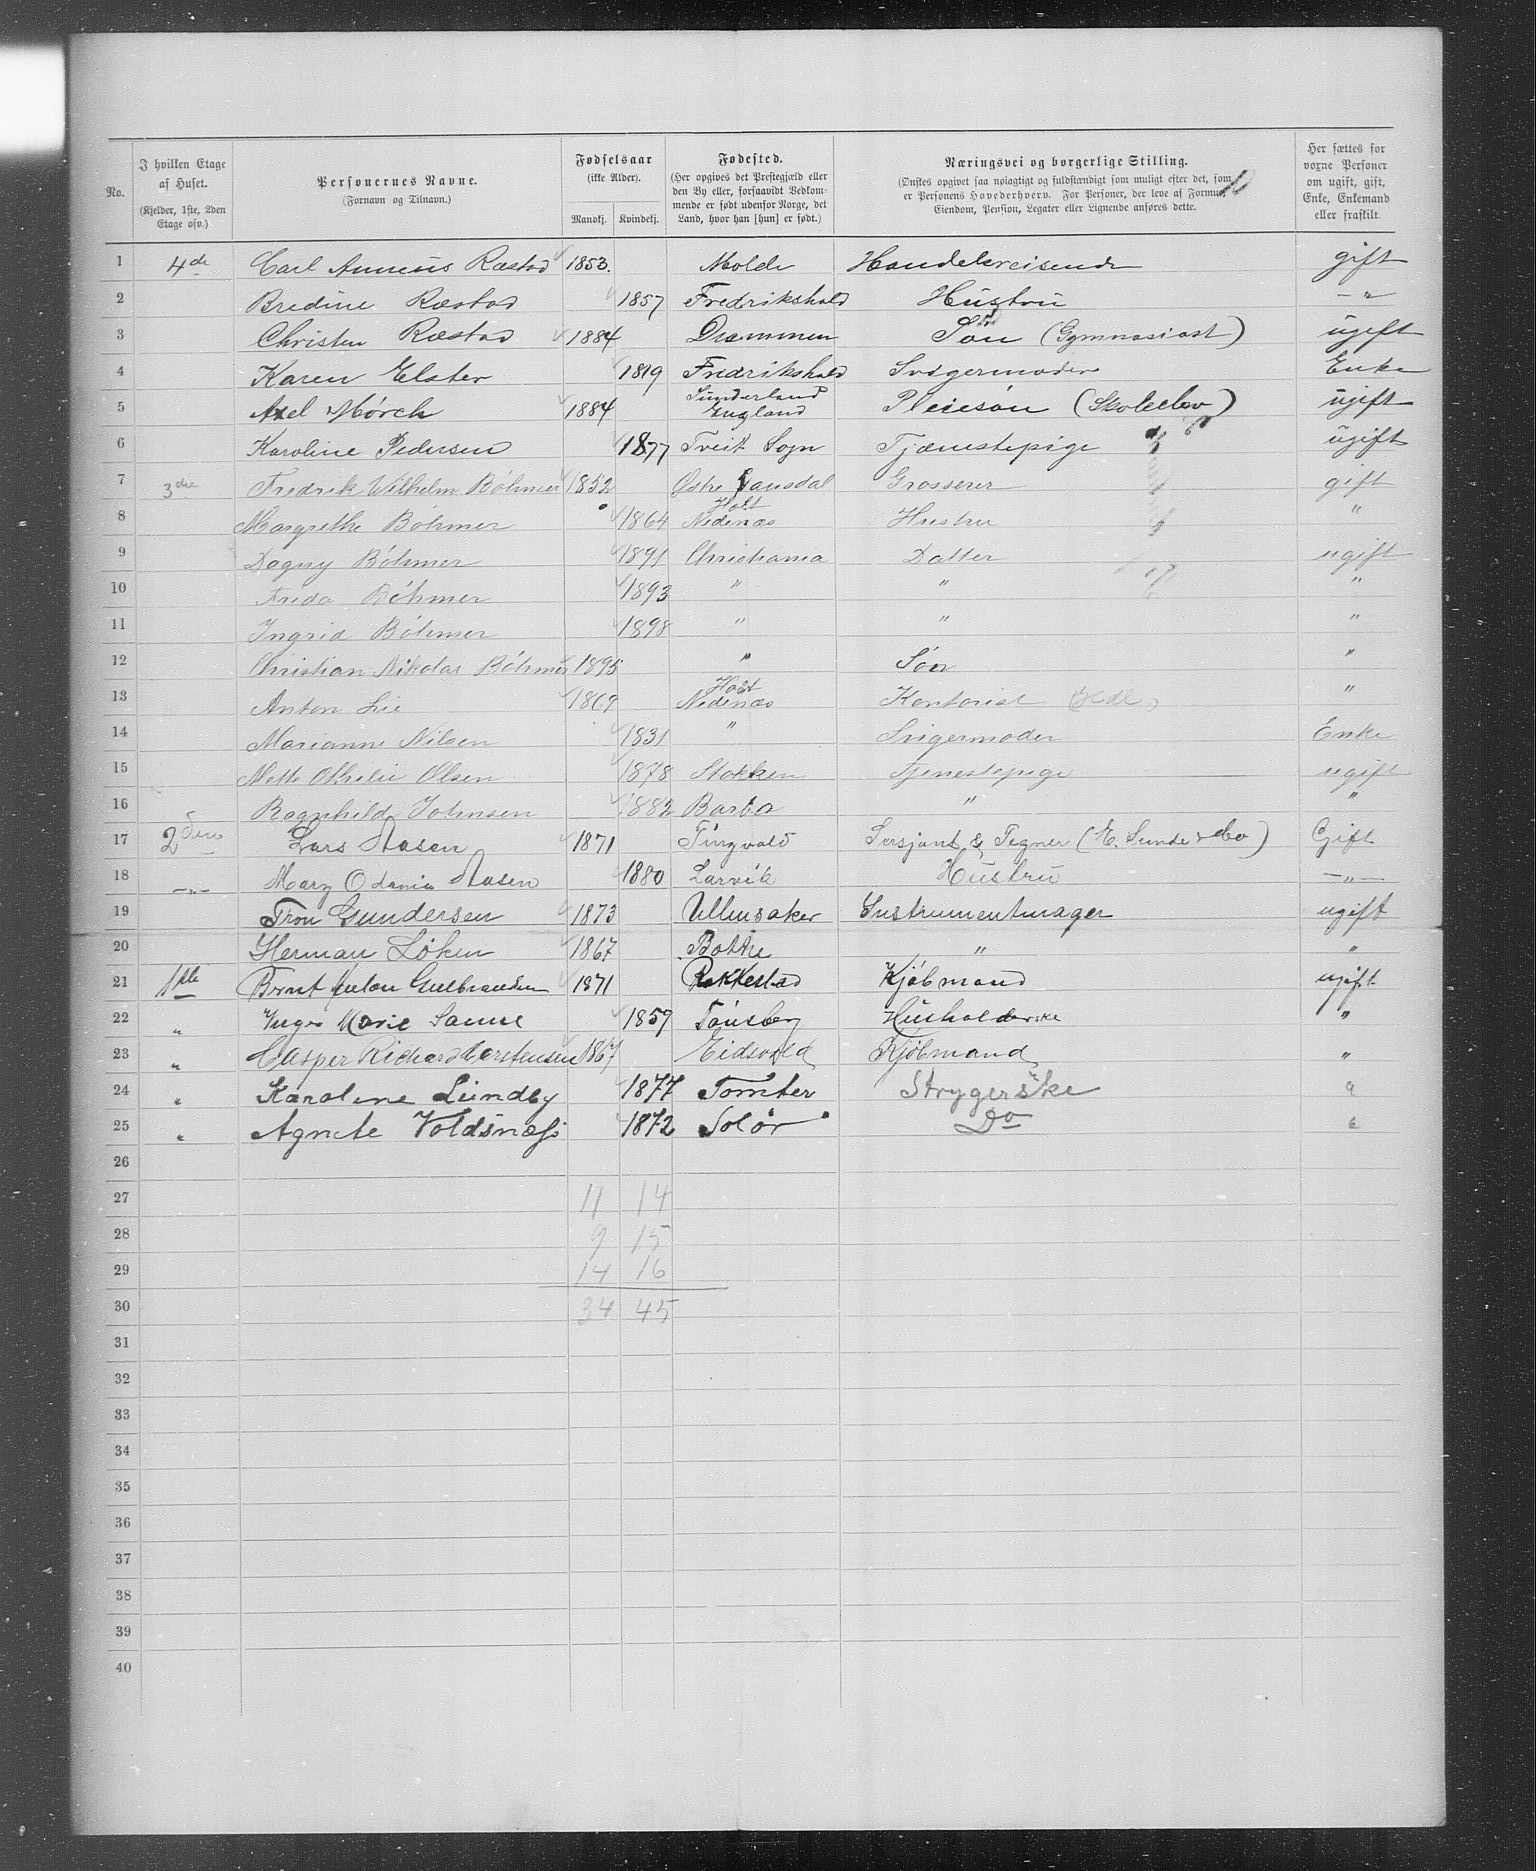 No.
I hvilken Etage af Huset.
(Kjelder, 1ste, 2den Etage osv.)
Personernes Navne.
(Fornavn og Tilnavn.)
Fødselsaar
(ikke Alder).
Mandkj. Kvindekj.
Fødested.
(Her opgives det Prestegjæld eller
den By eller, forsaavidt Vedkom-
mende er født udenfor Norge, det
Land, hvor han [hun] er født.)
Næringsvei og borgerlige Stilling.
(Ønskes opgivet saa nøiagtigt og fuldstændigt som muligt efter det, som
er Personens Hovederhverv. For Personer, der leve af Formue,
Eiendom, Pension, Legater eller Lignende anføres dette.
10
Her sættes for
voxne Personer
om ugift, gift,
Enke, Enkemand
eller fraskilt.
1 4de Carl Anneus Ræstad 1853. Molde Handelsreisende gift
2 Bredine Ræstad 1857 Fredrikshald Hustru - " -
3 Christen Ræstad 1884 Drammen Søn (Gymnasiast) ugift
4 Karen Elster 1819 Fredrikshald Svigermoder Enke
5 Axel Mörch 1884 Sunderland England Pleiesøn (Skoleelev) ugift
6 Karoline Pedersen 1877 Tveit Sogn Tjænestepige ugift
7 3die Fredrik Wilhelm Böhmer 1852 Østre Gausdal Grosserer gift
8 Margrethe Böhmer 1864 Holt Nedenæs Hustru "
9 Dagny Böhmer 1891 Christiania Datter ugift
10 Frida Böhmer 1893 " " "
11 Ingrid Böhmer 1898 " " "
12 Christian Nikolai Böhmer 1895 " Søn "
13 Anton Lie 1869 Holt Nedenæs Kontorist "
14 Marianne Nilsen 1831 " Svigermoder Enke
15 Mette Othilie Olsen 1878 Stokken Tjenestepige ugift
16 Ragnhild Johnsen 1882 Barbo " "
17 2den Lars Aasen 1871 Tingvold Sersjant & Tegner (E. Sunde & Co) Gift
18 - " - Mary Odania Aasen 1880 Larvik Hustru - " -
19 Tron Gundersen 1873 Ullensaker Instrumentmager ugift
20 Herman Løken 1867 Botne " "
21 1ste Bernt Anton Gulbrandsen 1871 Rakkestad Kjøbmand ugift
22 " Inger Marie Sanne 1859 Tönsberg Husholderske "
23 " Casper Richard Torstensen 1867 Eidsvold Kjøbmand "
24 " Karoline Lundby 1877 Tomter Strygerske "
25 " Agnete Voldsnæss 1872 Solör Do "
26
27 11 14
28 9 15
29 14 16
30 34 45
31
32
33
34
35
36
37
38
39
40